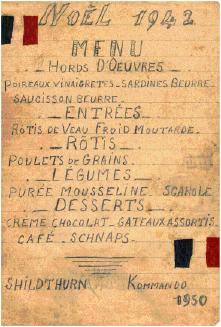 NOËL 1942
MENU
HORDS D'OEUVRES
POIREAUX VINAIGRETTES - SARDINES BEURRE -
SAUCISSON BEURRE -
ENTRÉES
RÔTIS DE VEAU FROID MOUTARDE -
RÔTIS
POULETS DE GRAINS.
LÉGUMES
PURÉE MOUSSELINE - SCAROLE
DESSERTS
CRÈME CHOCOLAT - GATEAUX ASSORTIS
CAFÉ - SCHNAPS -
SHILDTHURN KOMMANDO
1950